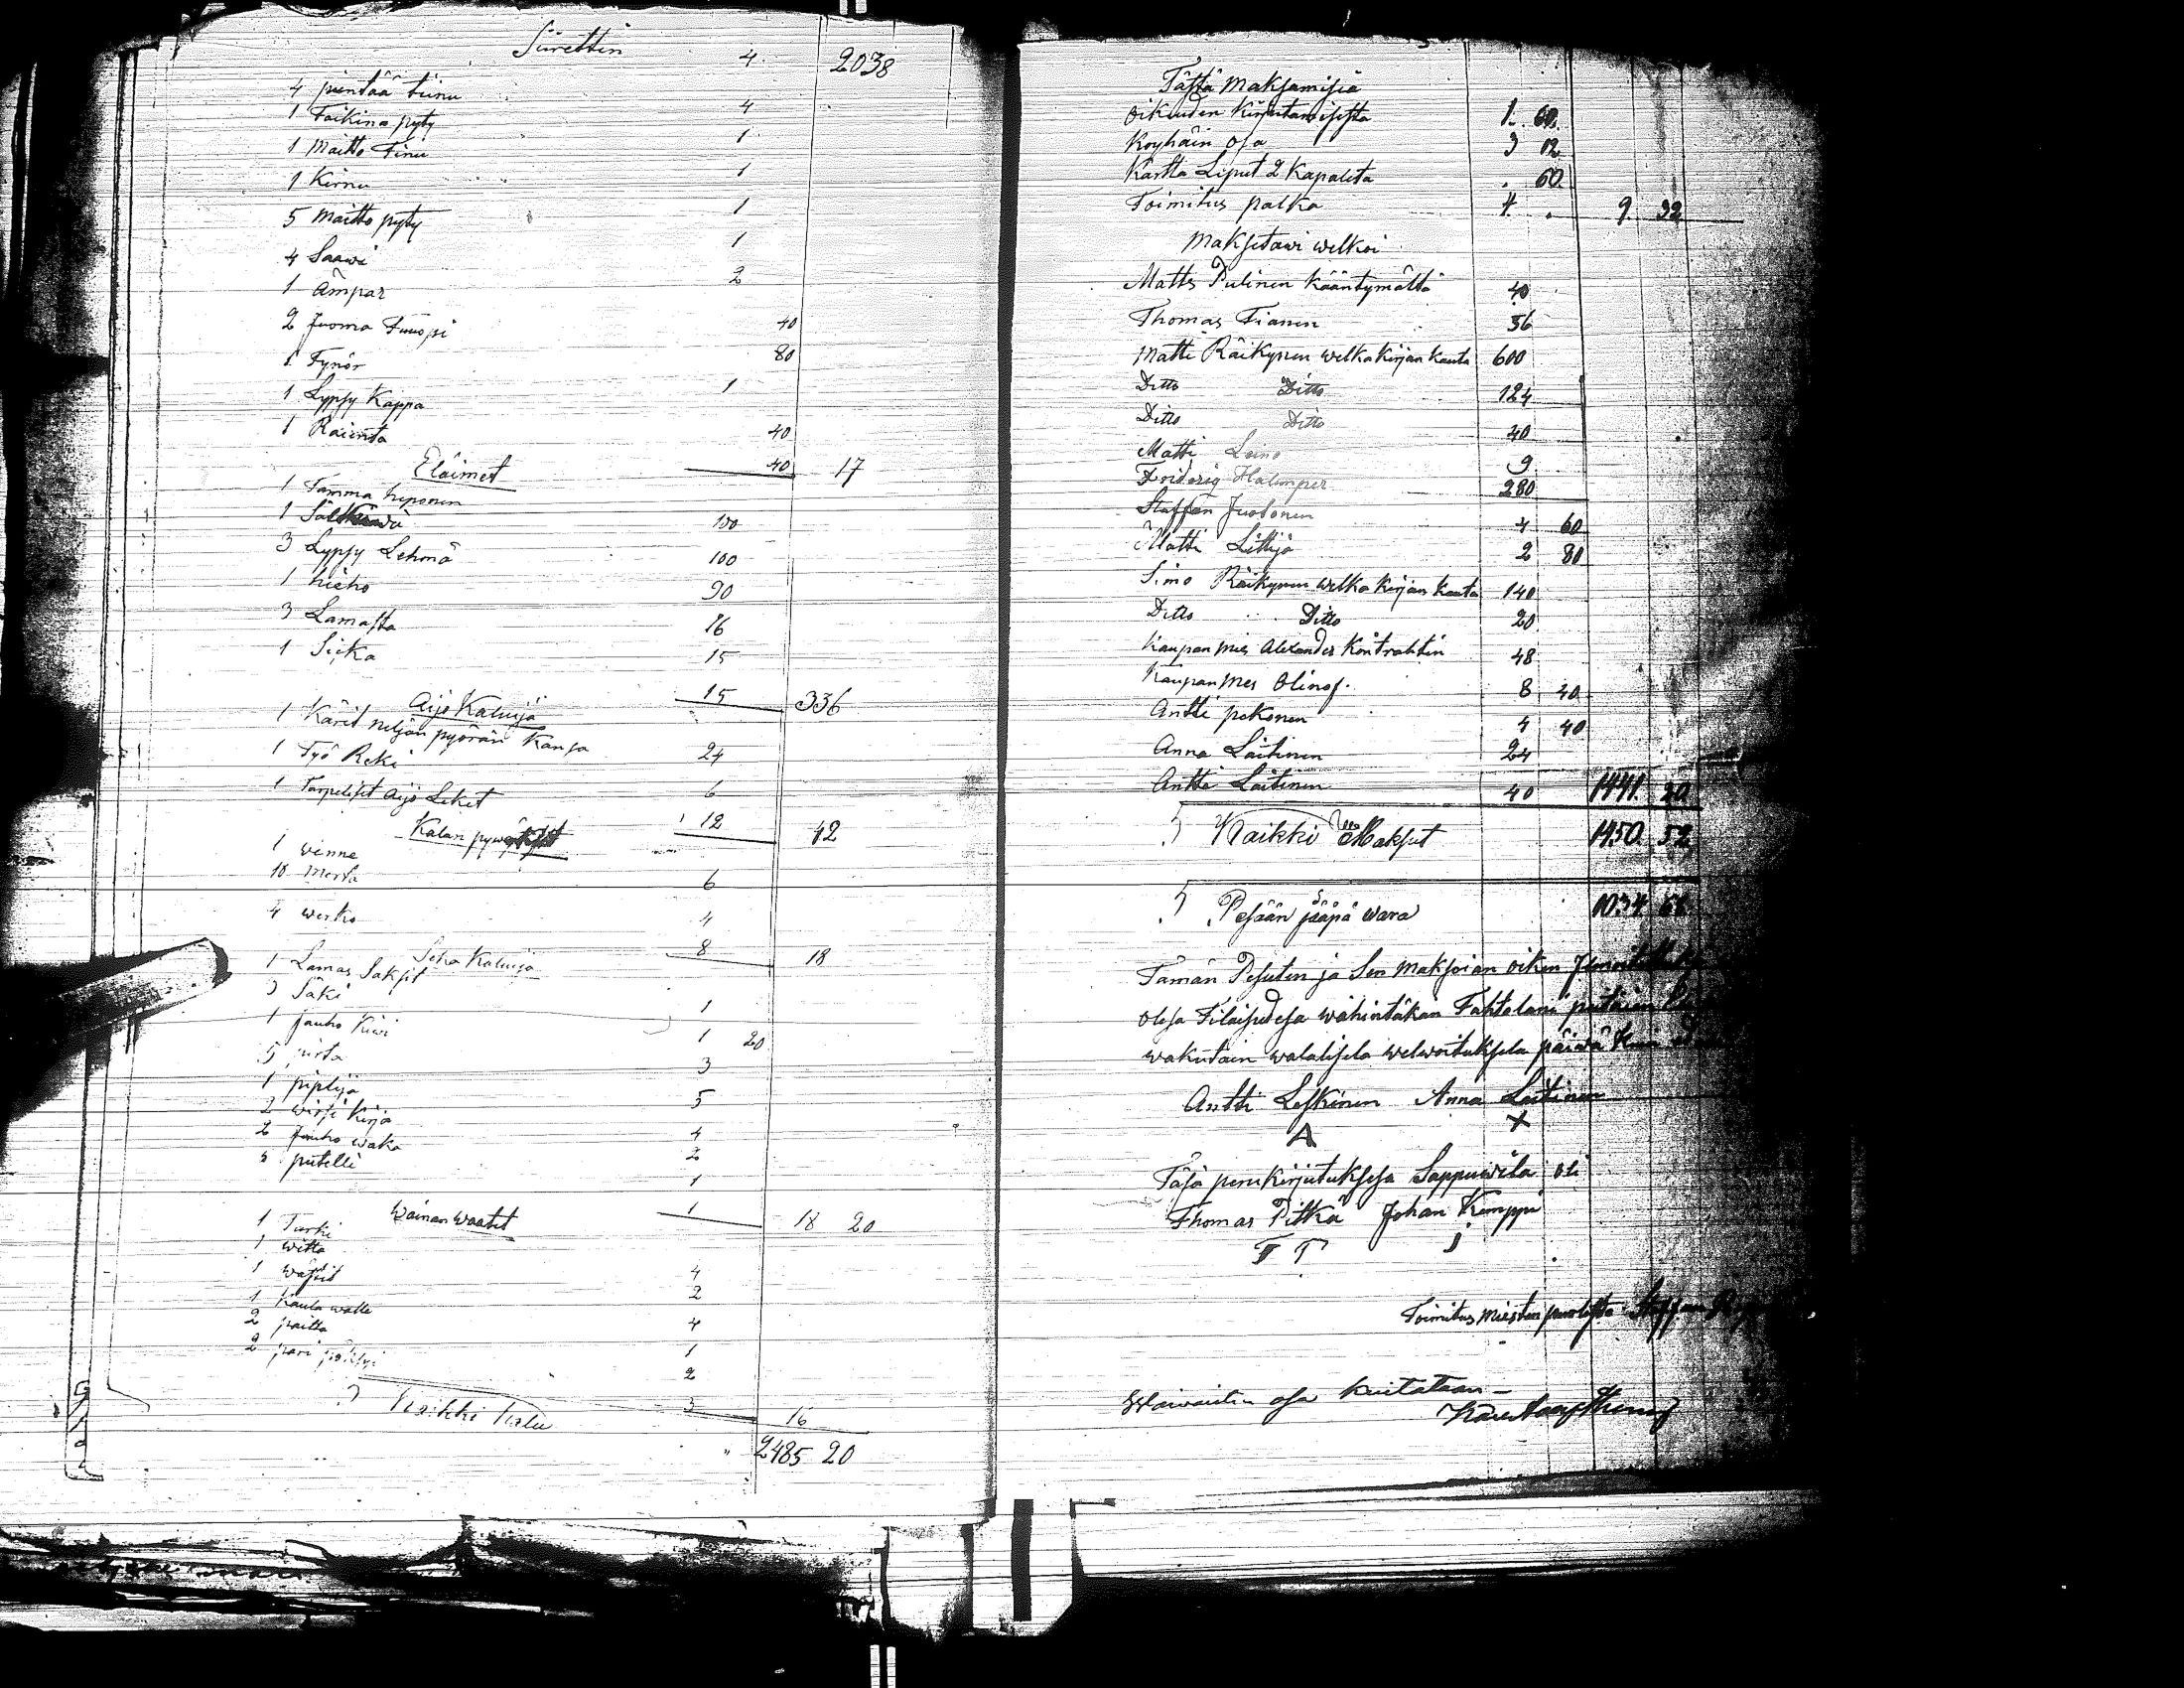 Siirettin 4 2038
4 pientää tiinu 4
1 Taikina pyty 1
1 Maitto Tinu 1
1 Kirnu 1
5 Maitto pyty 1
4 Saawi 2
1 Ämpär 40
2 Juoma Tuoppi 80
1 Tynör 1
1 Lypsy Kappa 40
1 Rainta 40 17
Eläimet
1 Tamma heponen 100
1 100
3 Lypsy Lehmä 90
1 hieho 16
3 Lamasta 15
1 Sicka 15 336
Aijo Kaluija
1 Kärit neljän pyörän Kansa 24
1 Työ Reki 6
1 Aijo Leket 12 42
Kalan
1 venne 6
10 Merta 4
4 werko 8 18
Seka Kaluija
1 Lamas Sakset 1
3 Säki 1 20
1 jauho Kiwi 3
5 pirta 5
1 piplija 4
2 wirsi Kirja 2
2 Jauho waka 1
putelli 1 18 20
Wainan Waatit
1 Turki 4
1 witta 2
1 4
1 Kaula 1
2 paitta 2
2 pari 3 16
Kaikki Kalu 2485 20
Tästä Maksamisia
Oikeuden Kirjutamisesta 1. 60.
Koyhäin osa 3 12
Kartta Liput 2 Kapaleta . 60.
Toimitus palka 4. . 9. 32
Maksetawi welkoi
Matts Pulinen Kääntymättä 40
Thomas Tianen 56
Matti Räikynen welka kirjan kauta 600
Ditto Ditto 124
Ditto Ditto 40
Matti Leino 9
Friderig 280
Staffan Juotonen 4 60
Matti Littijä 2 80
Simo Räikynen welka kirjan kauta 140
Ditto Ditto 20
Kaupan mies Alexander Kontrahtin 48
Kaupan mes Olinof. 8 40
Antti pekonen 4 40
Anna Laitinen 24
Antti Laitinen 40 1441. 20
Kaikki Maksut 1450. 52
Pesään jääpä wara 1034 68
Tämän Pesuten ja Sen maksoian oiken
olesa Tilaisudesa wähintäkän Tahtolani
wakutain walalisela welwoituksela päiwä
Antti Leskinen Anna Laitinen
A X
Täsä perukirjutuksesa Sappuwila oli
Thomas Pitkä Johan Kemppi
T P J
Toimitus miesten puolesta Staffan
Waivaistin osa kuitataan –